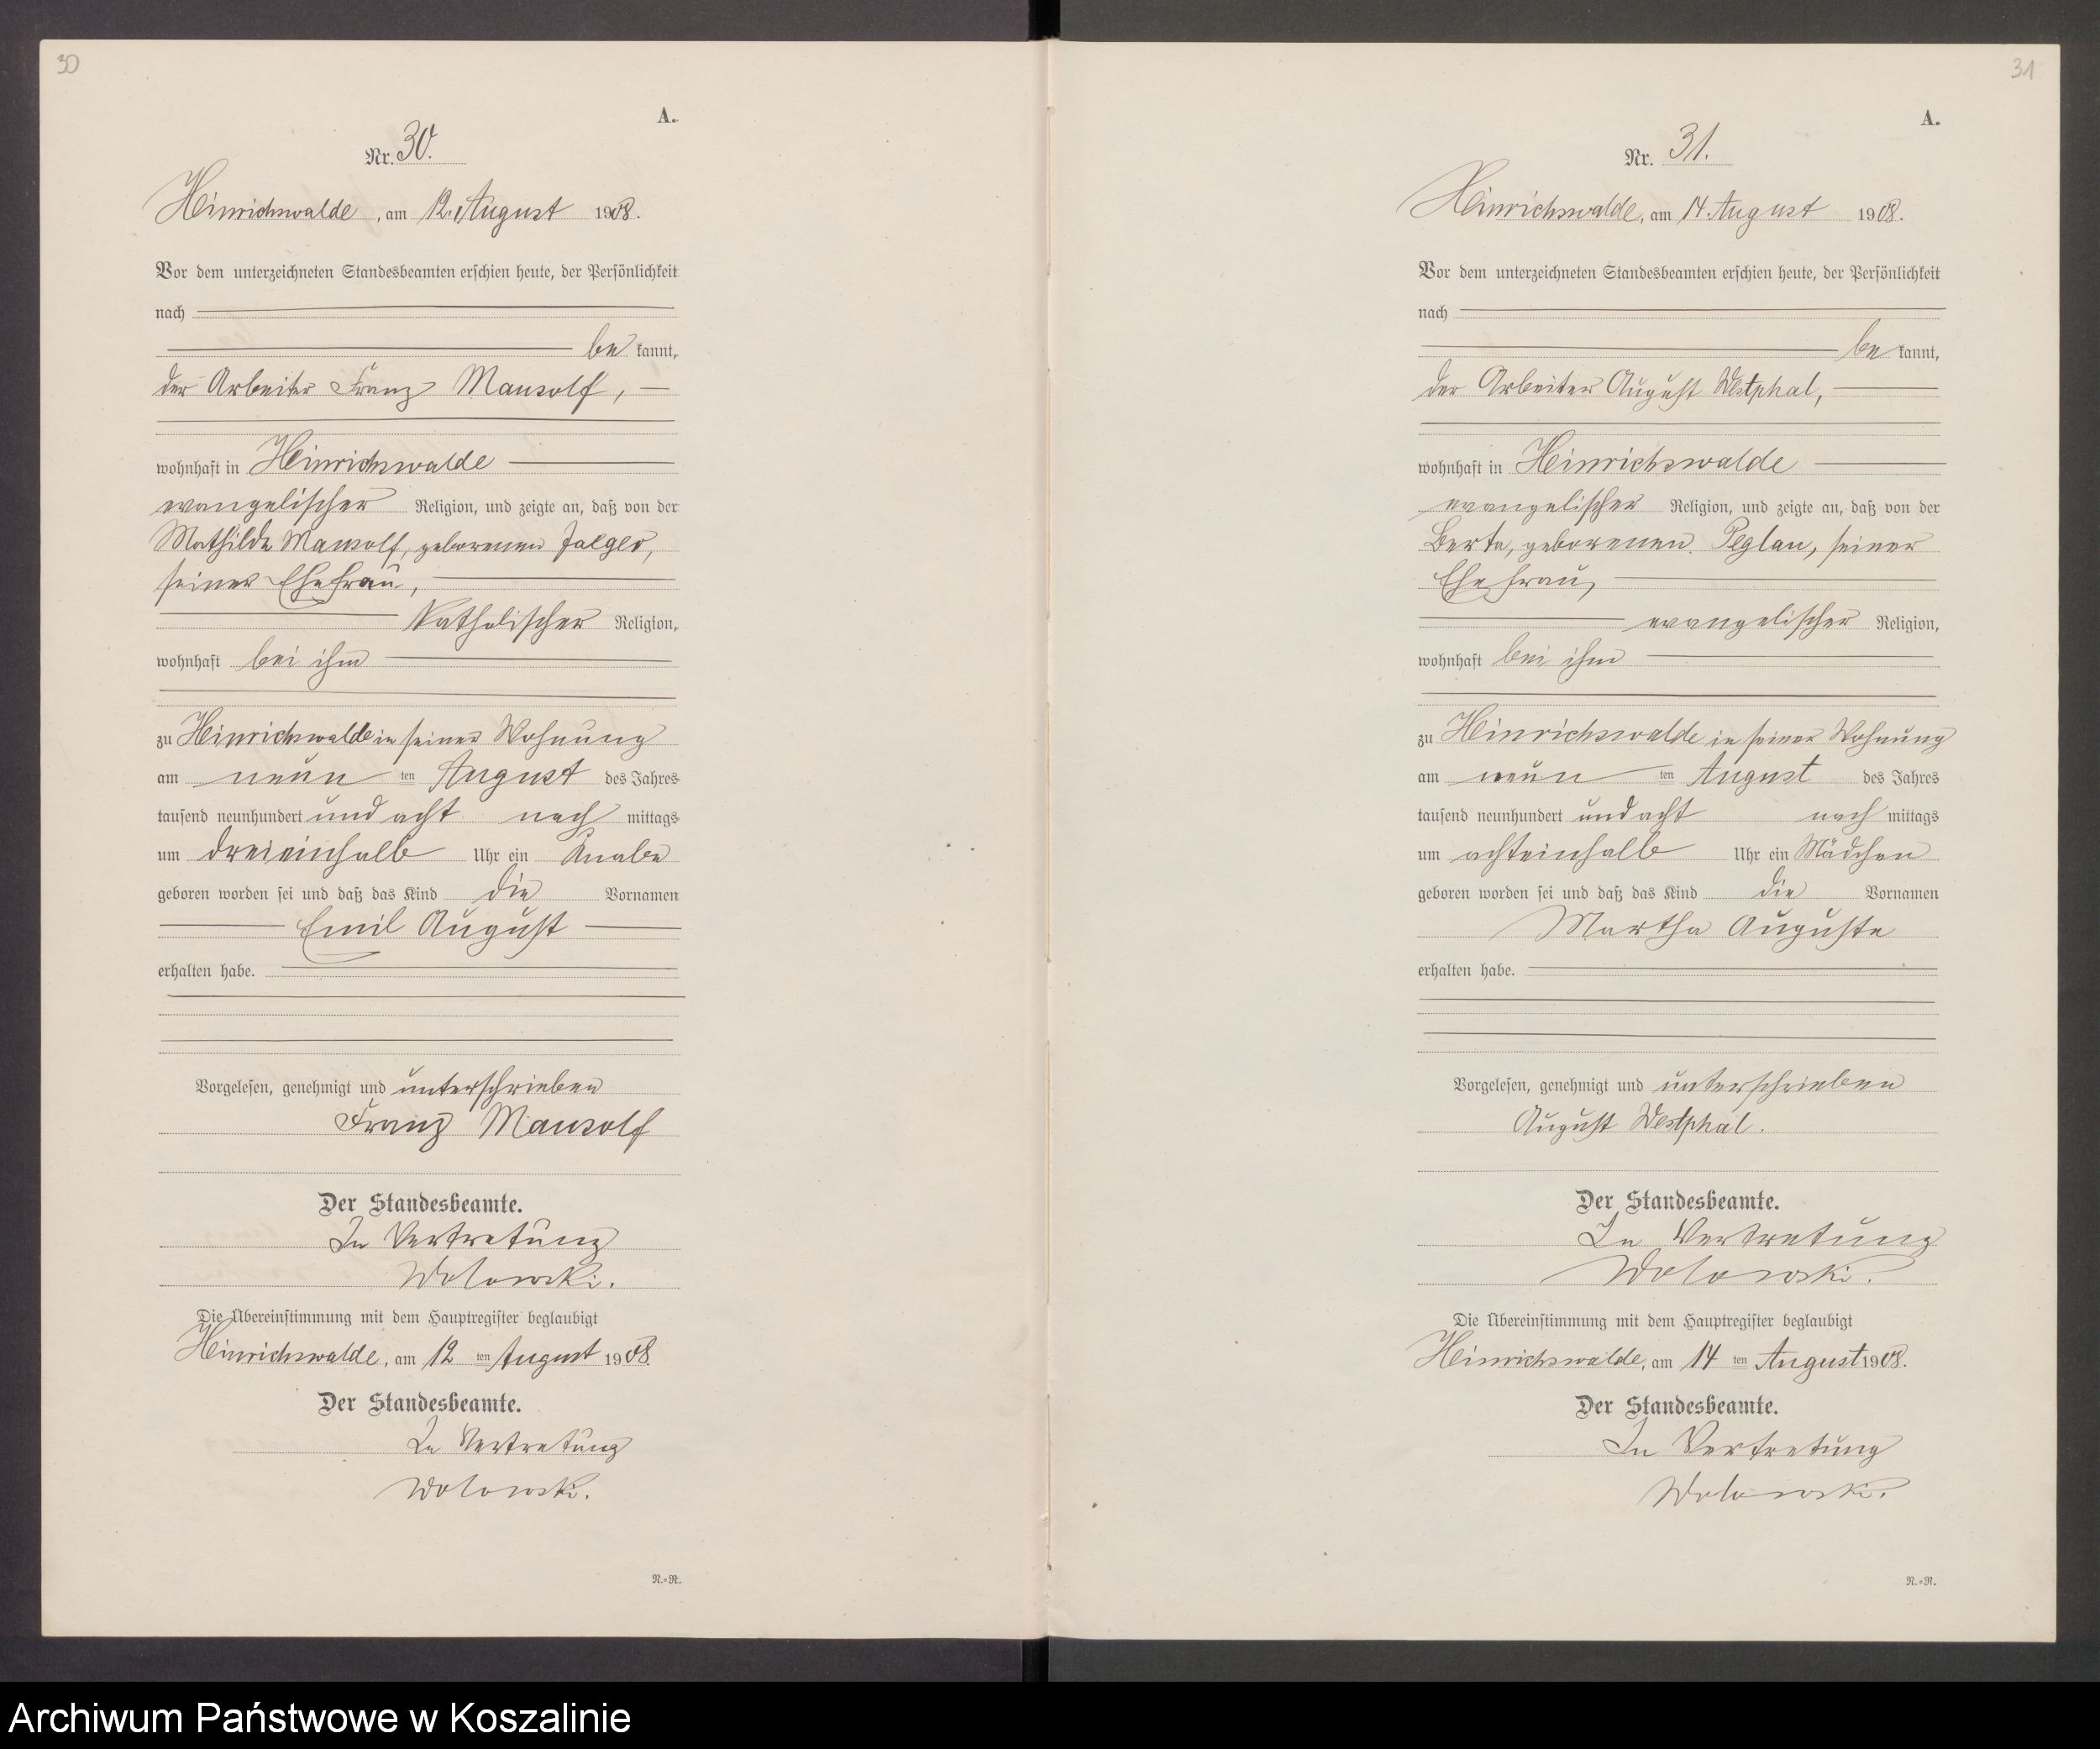 30
A.
Nr. 30.
Heinrichswalde, am 12. August 1908.
Vor dem unterzeichneten Standesbeamten erschien heute, der Persönlichkeit
nach
be kannt,
der Arbeiter Franz Mansolf,
wohnhaft in Heinrichswalde
evangelischer Religion, und zeigte an, daß von der
Mathilde Mansolf, geborenen Jaeger,
seiner Ehefrau,
Katholischer Religion,
wohnhaft bei ihm
zu Heinrichswalde in seiner Wohnung
am neun ten August des Jahres
tausend neunhundert und acht nach mittags
um dreieinhalb Uhr ein Knabe
geboren worden sei und daß das Kind die Vornamen
Emil August
erhalten habe.
Vorgelesen, genehmigt und unterschrieben
Franz Mansolf
Der Standesbeamte.
In Vertretung
Wolowski.
Die Übereinstimmung mit dem Hauptregister beglaubigt
Heinrichswalde, am 12 ten August 1908.
Der Standesbeamte.
In Vertretung
Wolowski.
N.-R.
31
A.
Nr. 31.
Heinrichswalde, am 14 August 1908.
Vor dem unterzeichneten Standesbeamten erschien heute, der Persönlichkeit
nach
be kannt,
der Arbeiter August Westphal,
wohnhaft in Heinrichswalde
evangelischer Religion, und zeigte an, daß von der
Berta, geborenen Peglau, seiner
Ehefrau,
evangelischer Religion,
wohnhaft bei ihm
zu Heinrichswalde in seiner Wohnung
am neun ten August des Jahres
tausend neunhundert und acht nach mittags
um achteinhalb Uhr ein Mädchen
geboren worden sei und daß das Kind die Vornamen
Martha Auguste
erhalten habe.
Vorgelesen, genehmigt und unterschrieben
August Westphal.
Der Standesbeamte.
In Vertretung
Wolowski.
Die Übereinstimmung mit dem Hauptregister beglaubigt
Heinrichswalde, am 14 ten August 1908.
Der Standesbeamte.
In Vertretung
Wolowski.
N.-R.
Archiwum Państwowe w Koszalinie